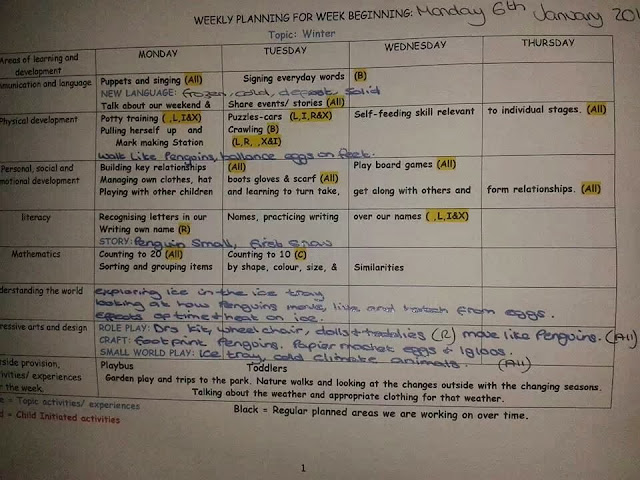 WEEKLY PLANNING FOR WEEK BEGINNING: Monday 6th January 201
Topic: Winter
Areas of learning and development MONDAY TUESDAY WEDNESDAY THURSDAY
mmunication and language Puppets and singing (All) Signing everyday words (B)
NEW LANGUAGE: frozen, cold, defrost, solid
Talk about our weekend & Share events/ stories (All)
Physical development Potty training ( ,L,I&X) Puzzles-cars (L,I,R&X) Self-feeding skill relevant to individual stages. (All)
Pulling herself up and Crawling (B)
Mark making Station (L,R, ,X&I)
Walk like Penguins, ballance eggs on feet.
Personal, social and Building key relationships (All) Play board games (All)
motional development Managing own clothes, hat boots gloves & scarf (All)
Playing with other children and learning to turn take, get along with others and form relationships. (All)
literacy Recognising letters in our Names, practicing writing over our names ( ,L,I&X)
Writing own name (R)
STORY: Penguin Small, First Snow
Mathematics Counting to 20 (All) Counting to 10 (C)
Sorting and grouping items by shape, colour, size, & Similarities
derstanding the world exploring ice in the ice tray
looking at how Penguins move, live and hatch from eggs.
effects of time & heat on ice.
ressive arts and design ROLE PLAY: Drs kit, wheelchair, dolls & teddies (R) move like Penguins. (All)
CRAFT: Footprint Penguins. Papier mochet eggs & Igloos.
SMALL WORLD PLAY: Ice tray, cold climate animals. (All)
side provision, Playbus Toddlers
tivities/ experiences Garden play and trips to the park. Nature walks and looking at the changes outside with the changing seasons.
the week. Talking about the weather and appropriate clothing for that weather.
e = Topic activities/ experiences Black = Regular planned areas we are working on over time.
d = Child Initiated activities
1